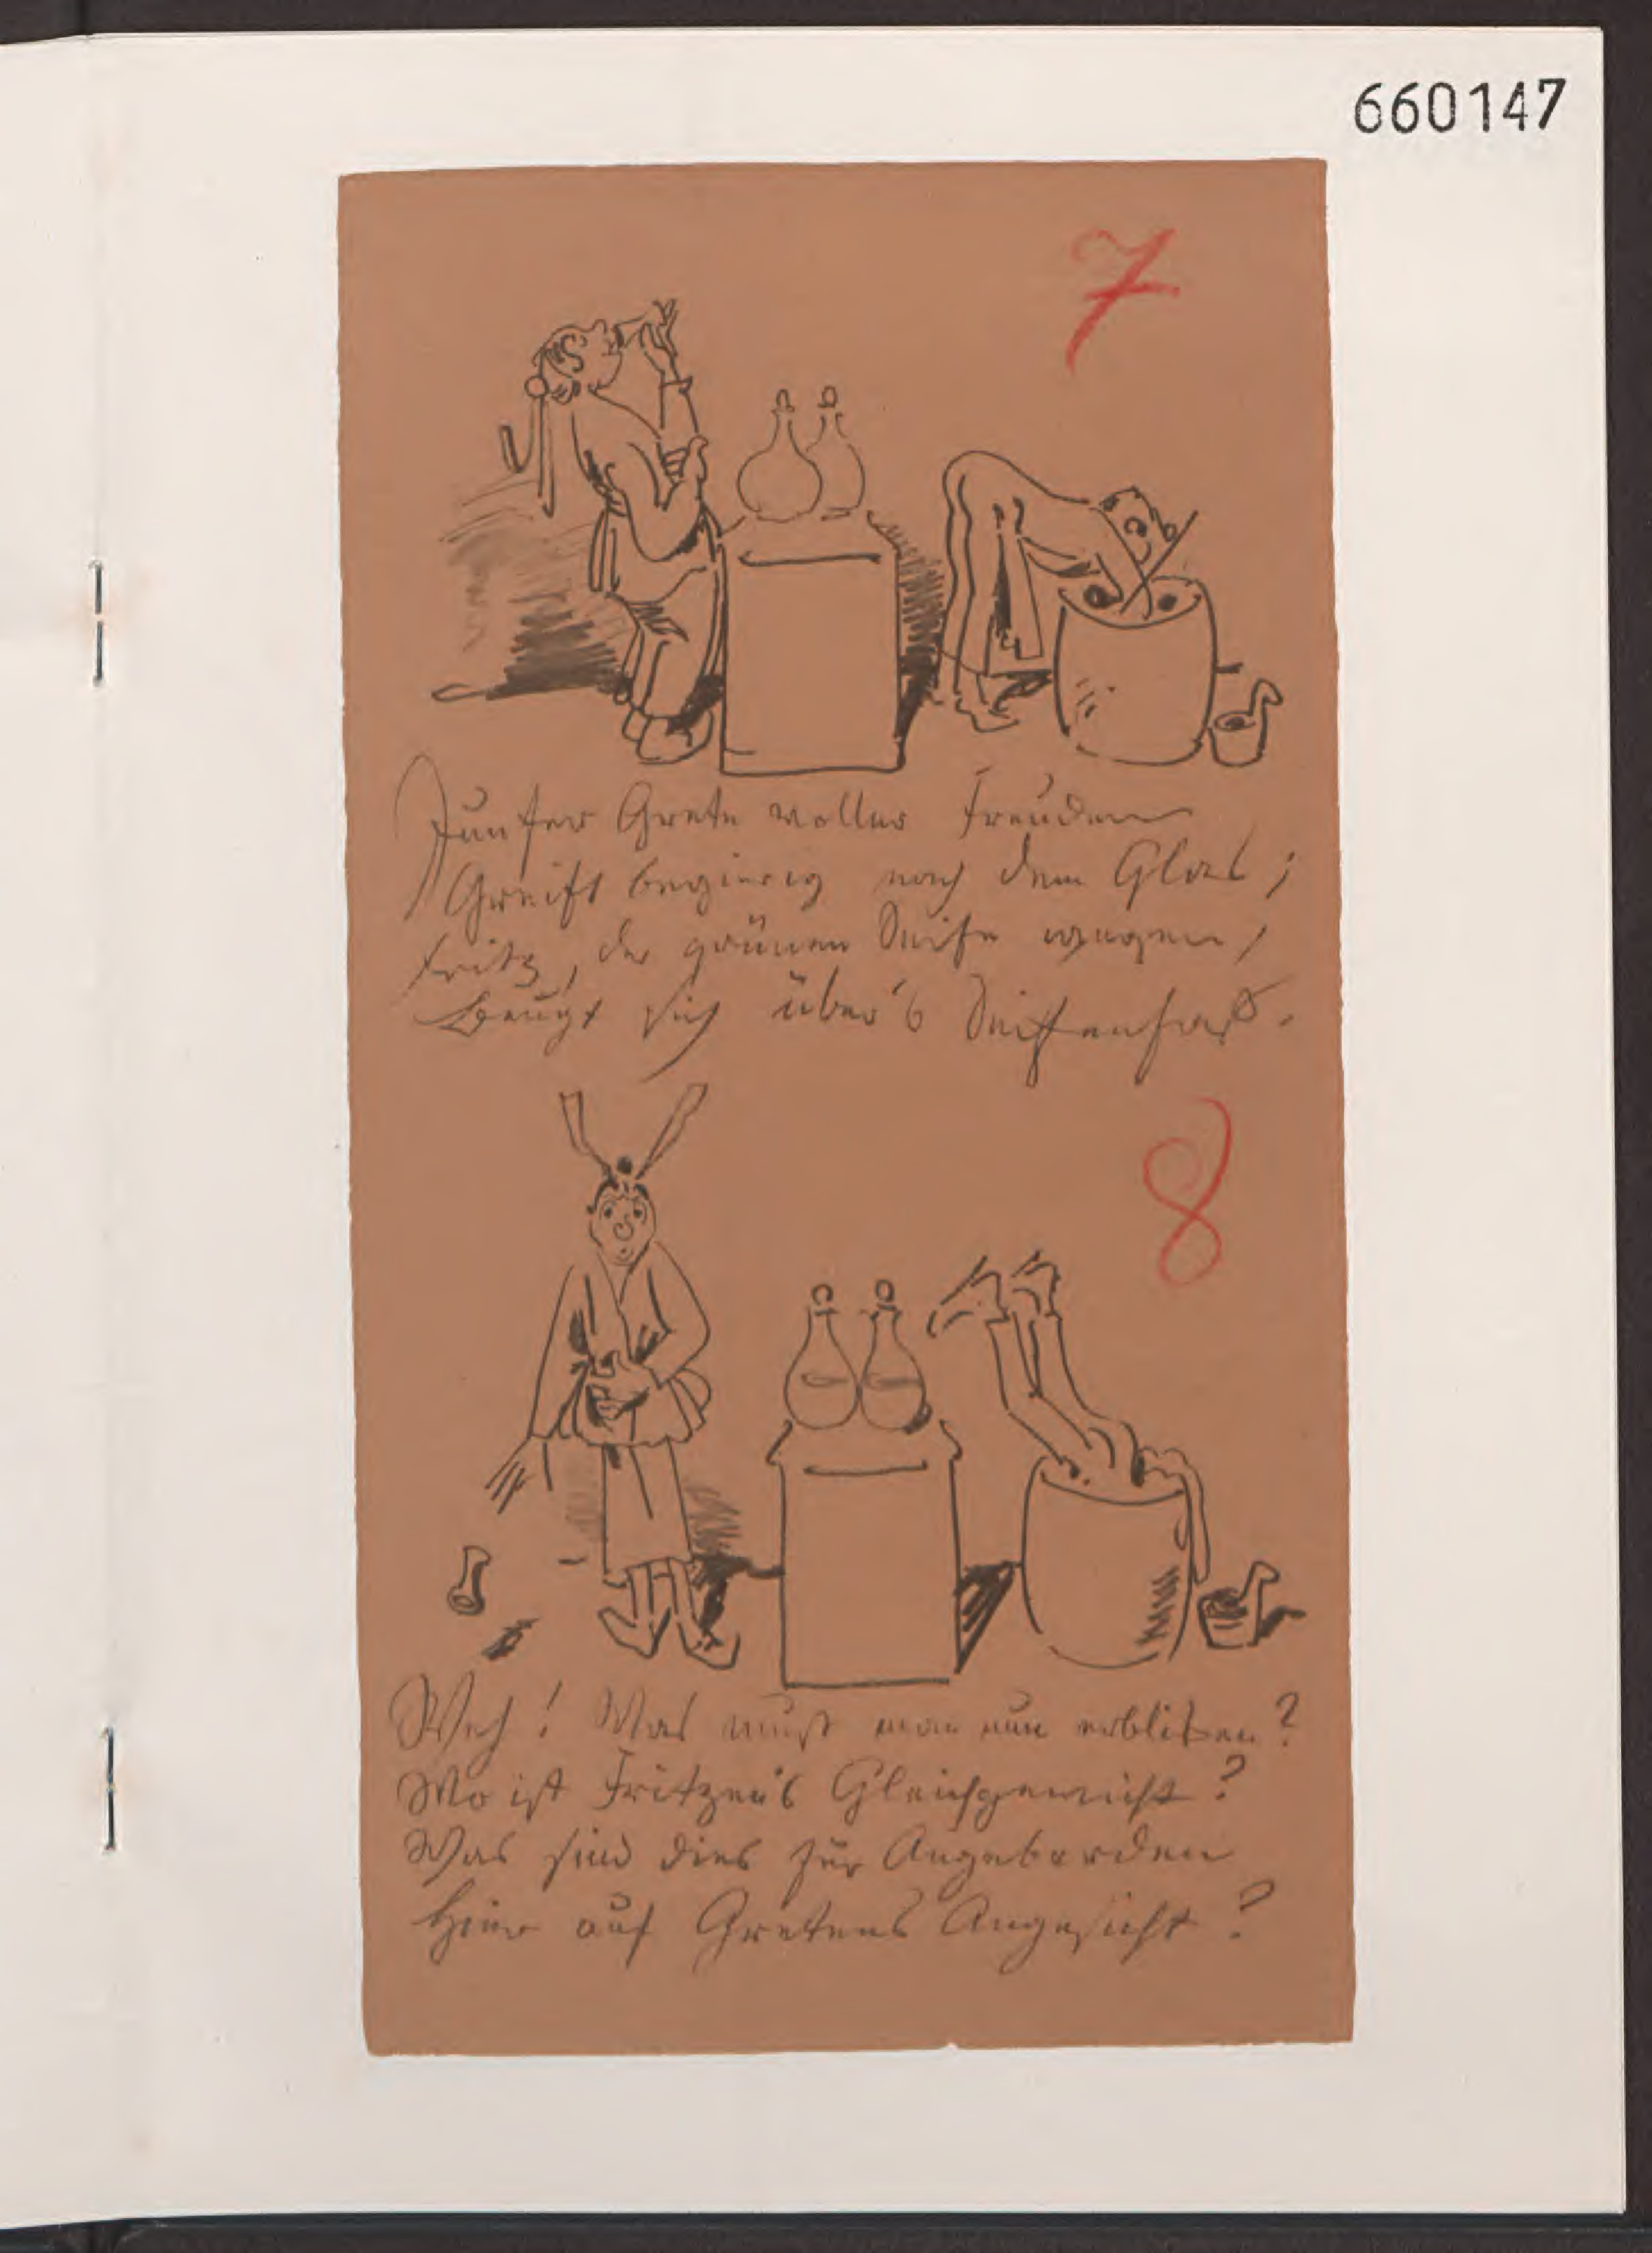 660147
7
Junfer Grete voller Freuden
Greift begierig nach dem Glas;
Fritz, der grünen Seife wegen,
Beugt sich über's Seifenfaß.
8
Weh! Was muß man nun erblicken?
Wo ist Fritzen's Gleichgewicht?
Was sind dies für Angeberden
Hier auf Gretens Angesicht?